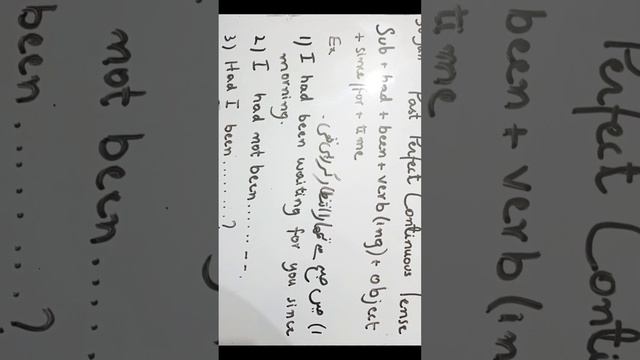 Past Perfect Continuous Tense
Sub + had + been + verb(ing) + object
+ since/for + time
Ex
۱) میں صبح سے تمہارا انتظار کر رہی تھی۔
1) I had been waiting for you since
morning.
2) I had not been..........
3) Had I been.........?